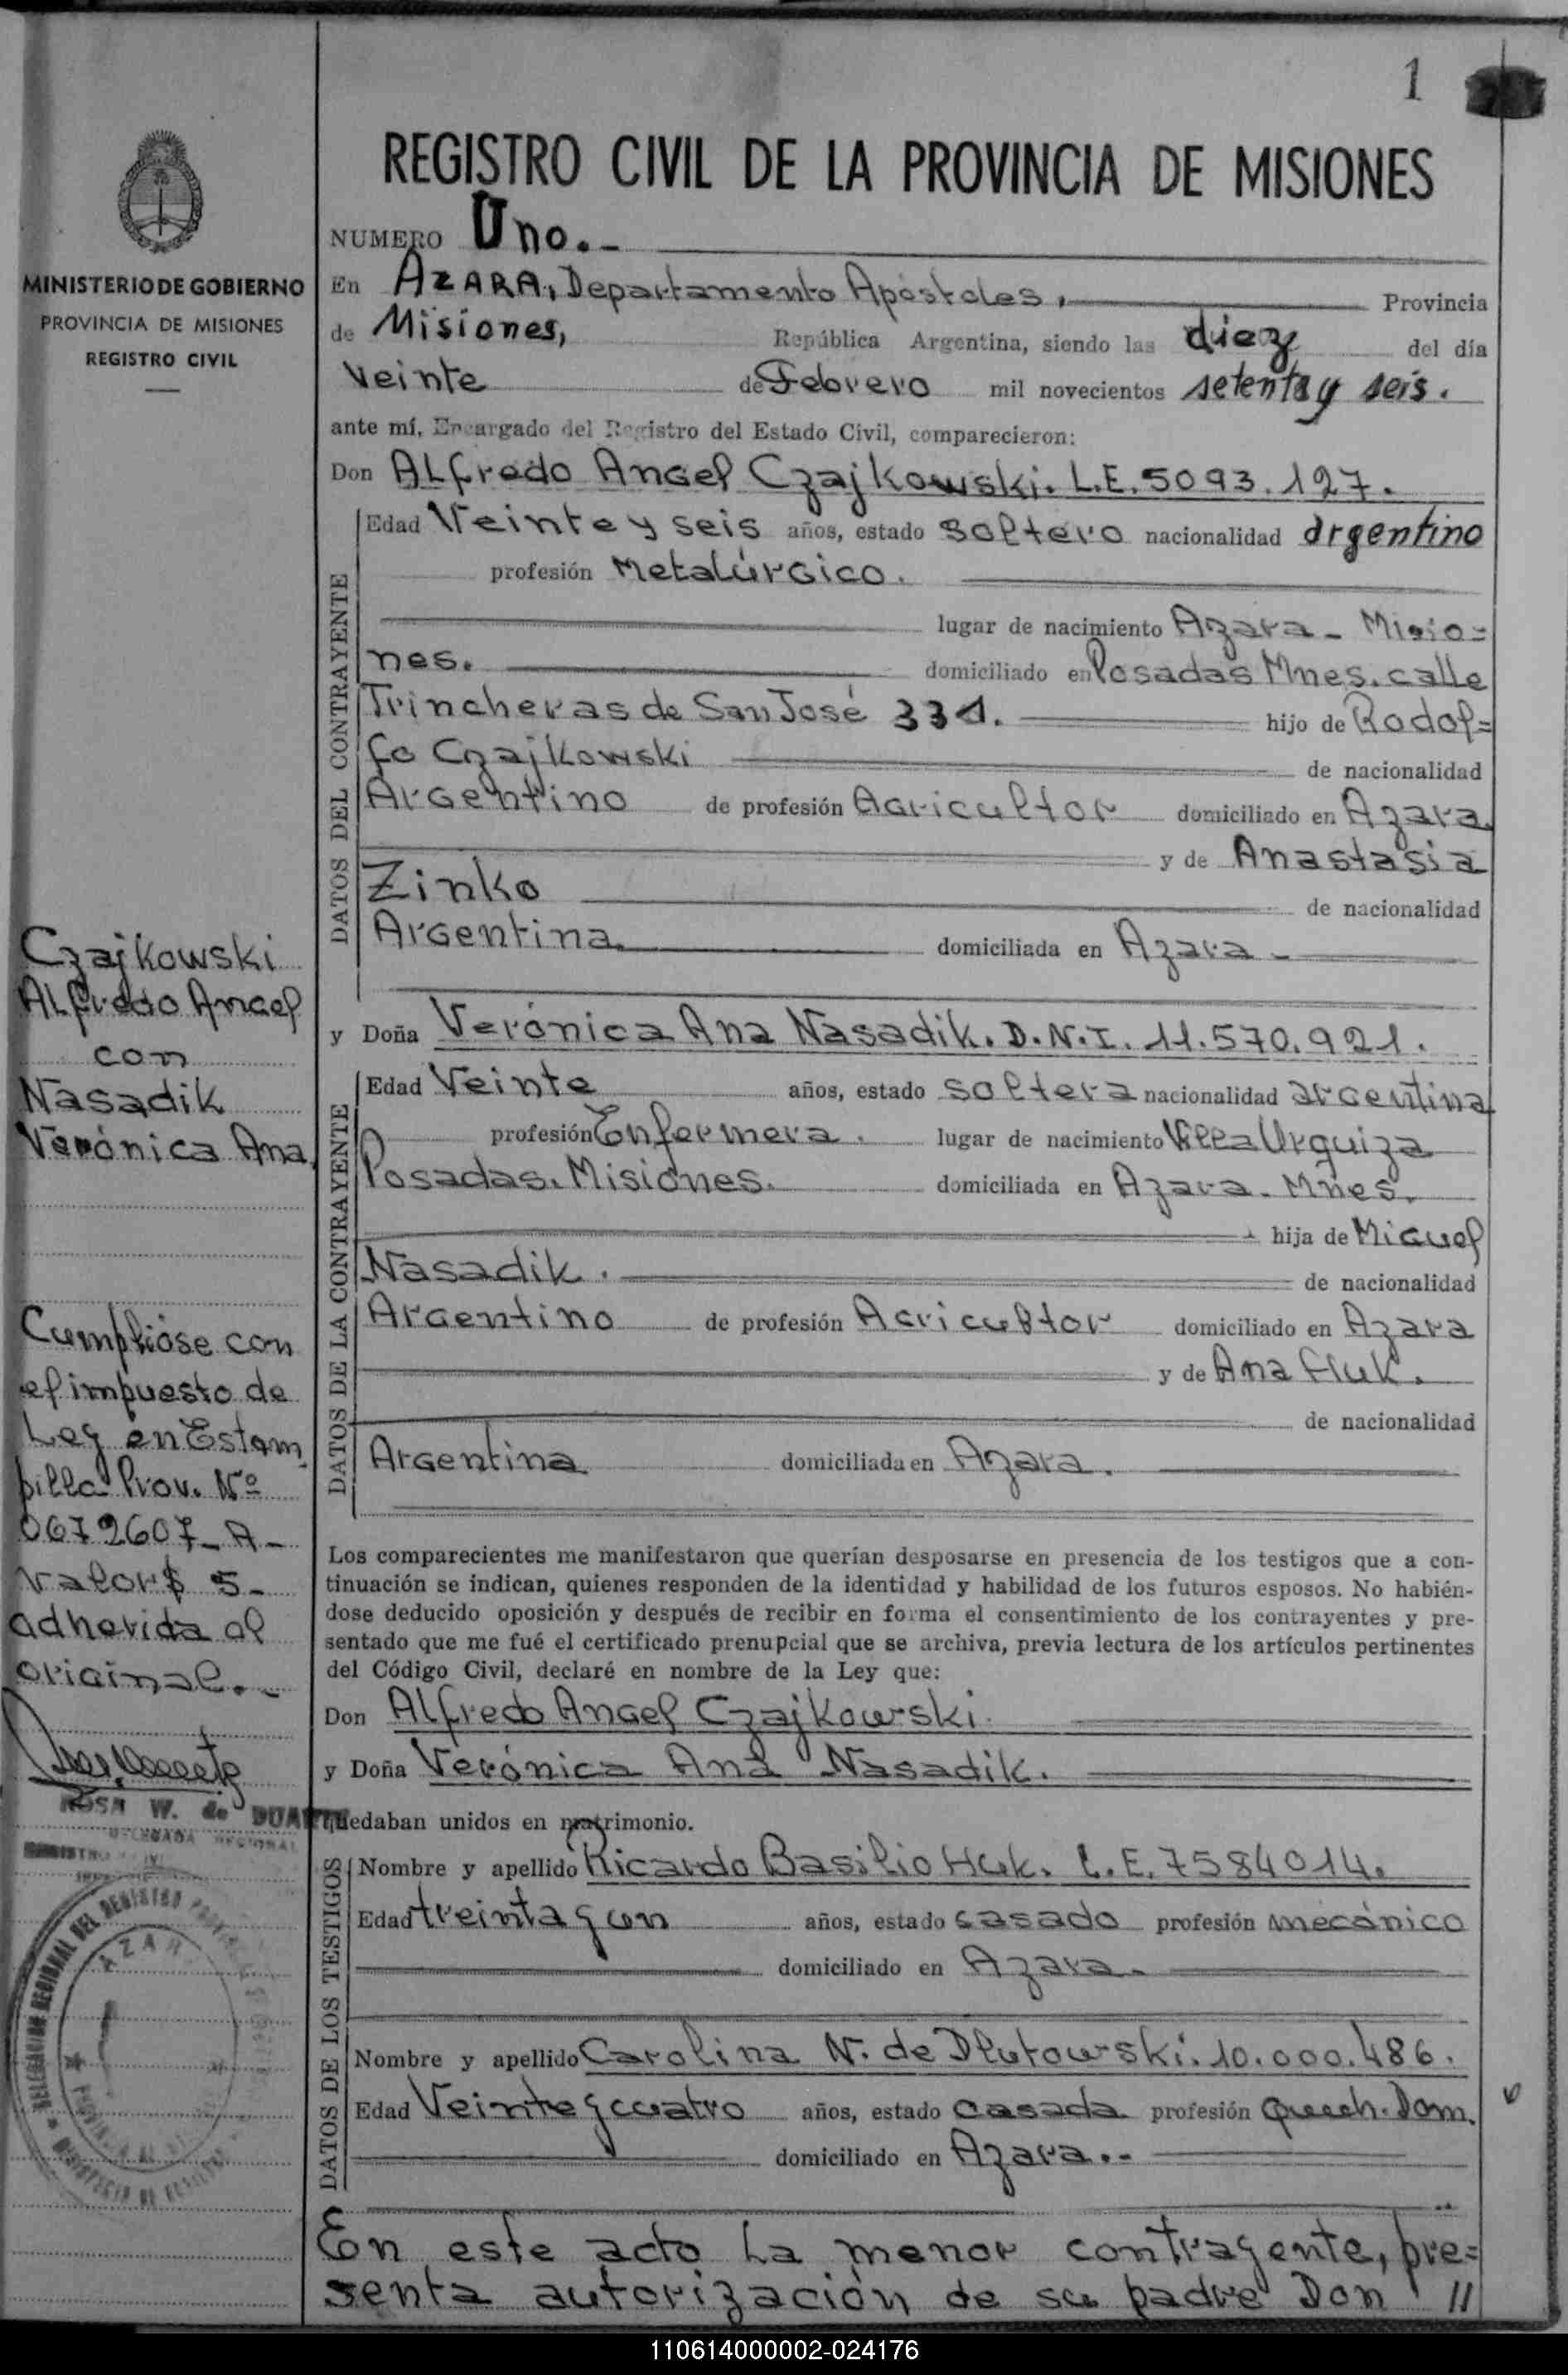 1
REGISTRO CIVIL DE LA PROVINCIA DE MISIONES
NUMERO Uno.-
En AZARA, Departamento Apóstoles, Provincia
de Misiones, República Argentina, siendo las diez del día
Veinte de Febrero mil novecientos setenta y seis.
ante mí, Encargado del Registro del Estado Civil, comparecieron:
Don Alfredo Angel Czajkowski. L.E. 5093.127.
DATOS DEL CONTRAYENTE
Edad Veinte y seis años, estado soltero nacionalidad argentino
profesión Metalúrgico.
lugar de nacimiento Azara - Misio=
nes. domiciliado en Posadas Mnes. calle
Trincheras de San José 331. hijo de Rodol=
fo Czajkowski de nacionalidad
Argentino de profesión Agricultor domiciliado en Azara.
y de Anastasia
Zinko de nacionalidad
Argentina. domiciliada en Azara -
y Doña Verónica Ana Nasadik. D.N.I. 11.570.921.
DATOS DE LA CONTRAYENTE
Edad Veinte años, estado soltera nacionalidad argentina
profesión Enfermera. lugar de nacimiento Villa Urquiza
Posadas. Misiones. domiciliada en Azara. Mnes.
hija de Miguel
Nasadik. de nacionalidad
Argentino de profesión Agricultor domiciliado en Azara
y de Ana Huk.
de nacionalidad
Argentina domiciliada en Azara.
Los comparecientes me manifestaron que querían desposarse en presencia de los testigos que a con-
tinuación se indican, quienes responden de la identidad y habilidad de los futuros esposos. No habién-
dose deducido oposición y después de recibir en forma el consentimiento de los contrayentes y pre-
sentado que me fué el certificado prenupcial que se archiva, previa lectura de los artículos pertinentes
del Código Civil, declaré en nombre de la Ley que:
Don Alfredo Angel Czajkowski.
y Doña Verónica Ana Nasadik.
quedaban unidos en matrimonio.
DATOS DE LOS TESTIGOS
Nombre y apellido Ricardo Basilio Huk. L.E. 7584014.
Edad treinta y un años, estado casado profesión mecánico
domiciliado en Azara.
Nombre y apellido Carolina N. de Dlutowski. 10.000.486.
Edad Veinte y cuatro años, estado casada profesión Quech. Dom.
domiciliado en Azara.-
En este acto la menor contrayente, pre=
senta autorización de su padre Don //
MINISTERIO DE GOBIERNO
PROVINCIA DE MISIONES
REGISTRO CIVIL
Czajkowski
Alfredo Angel
con
Nasadik
Verónica Ana
Cumplióse con
el impuesto de
Ley en Estam
pilla Prov. Nº
0672607-A-
valor $ 5-
adherida al
original.-
ROSA W. de DUARTE
DELEGADA REGIONAL
DELEGACION REGIONAL DEL REGISTRO
AZARA
110614000002-024176